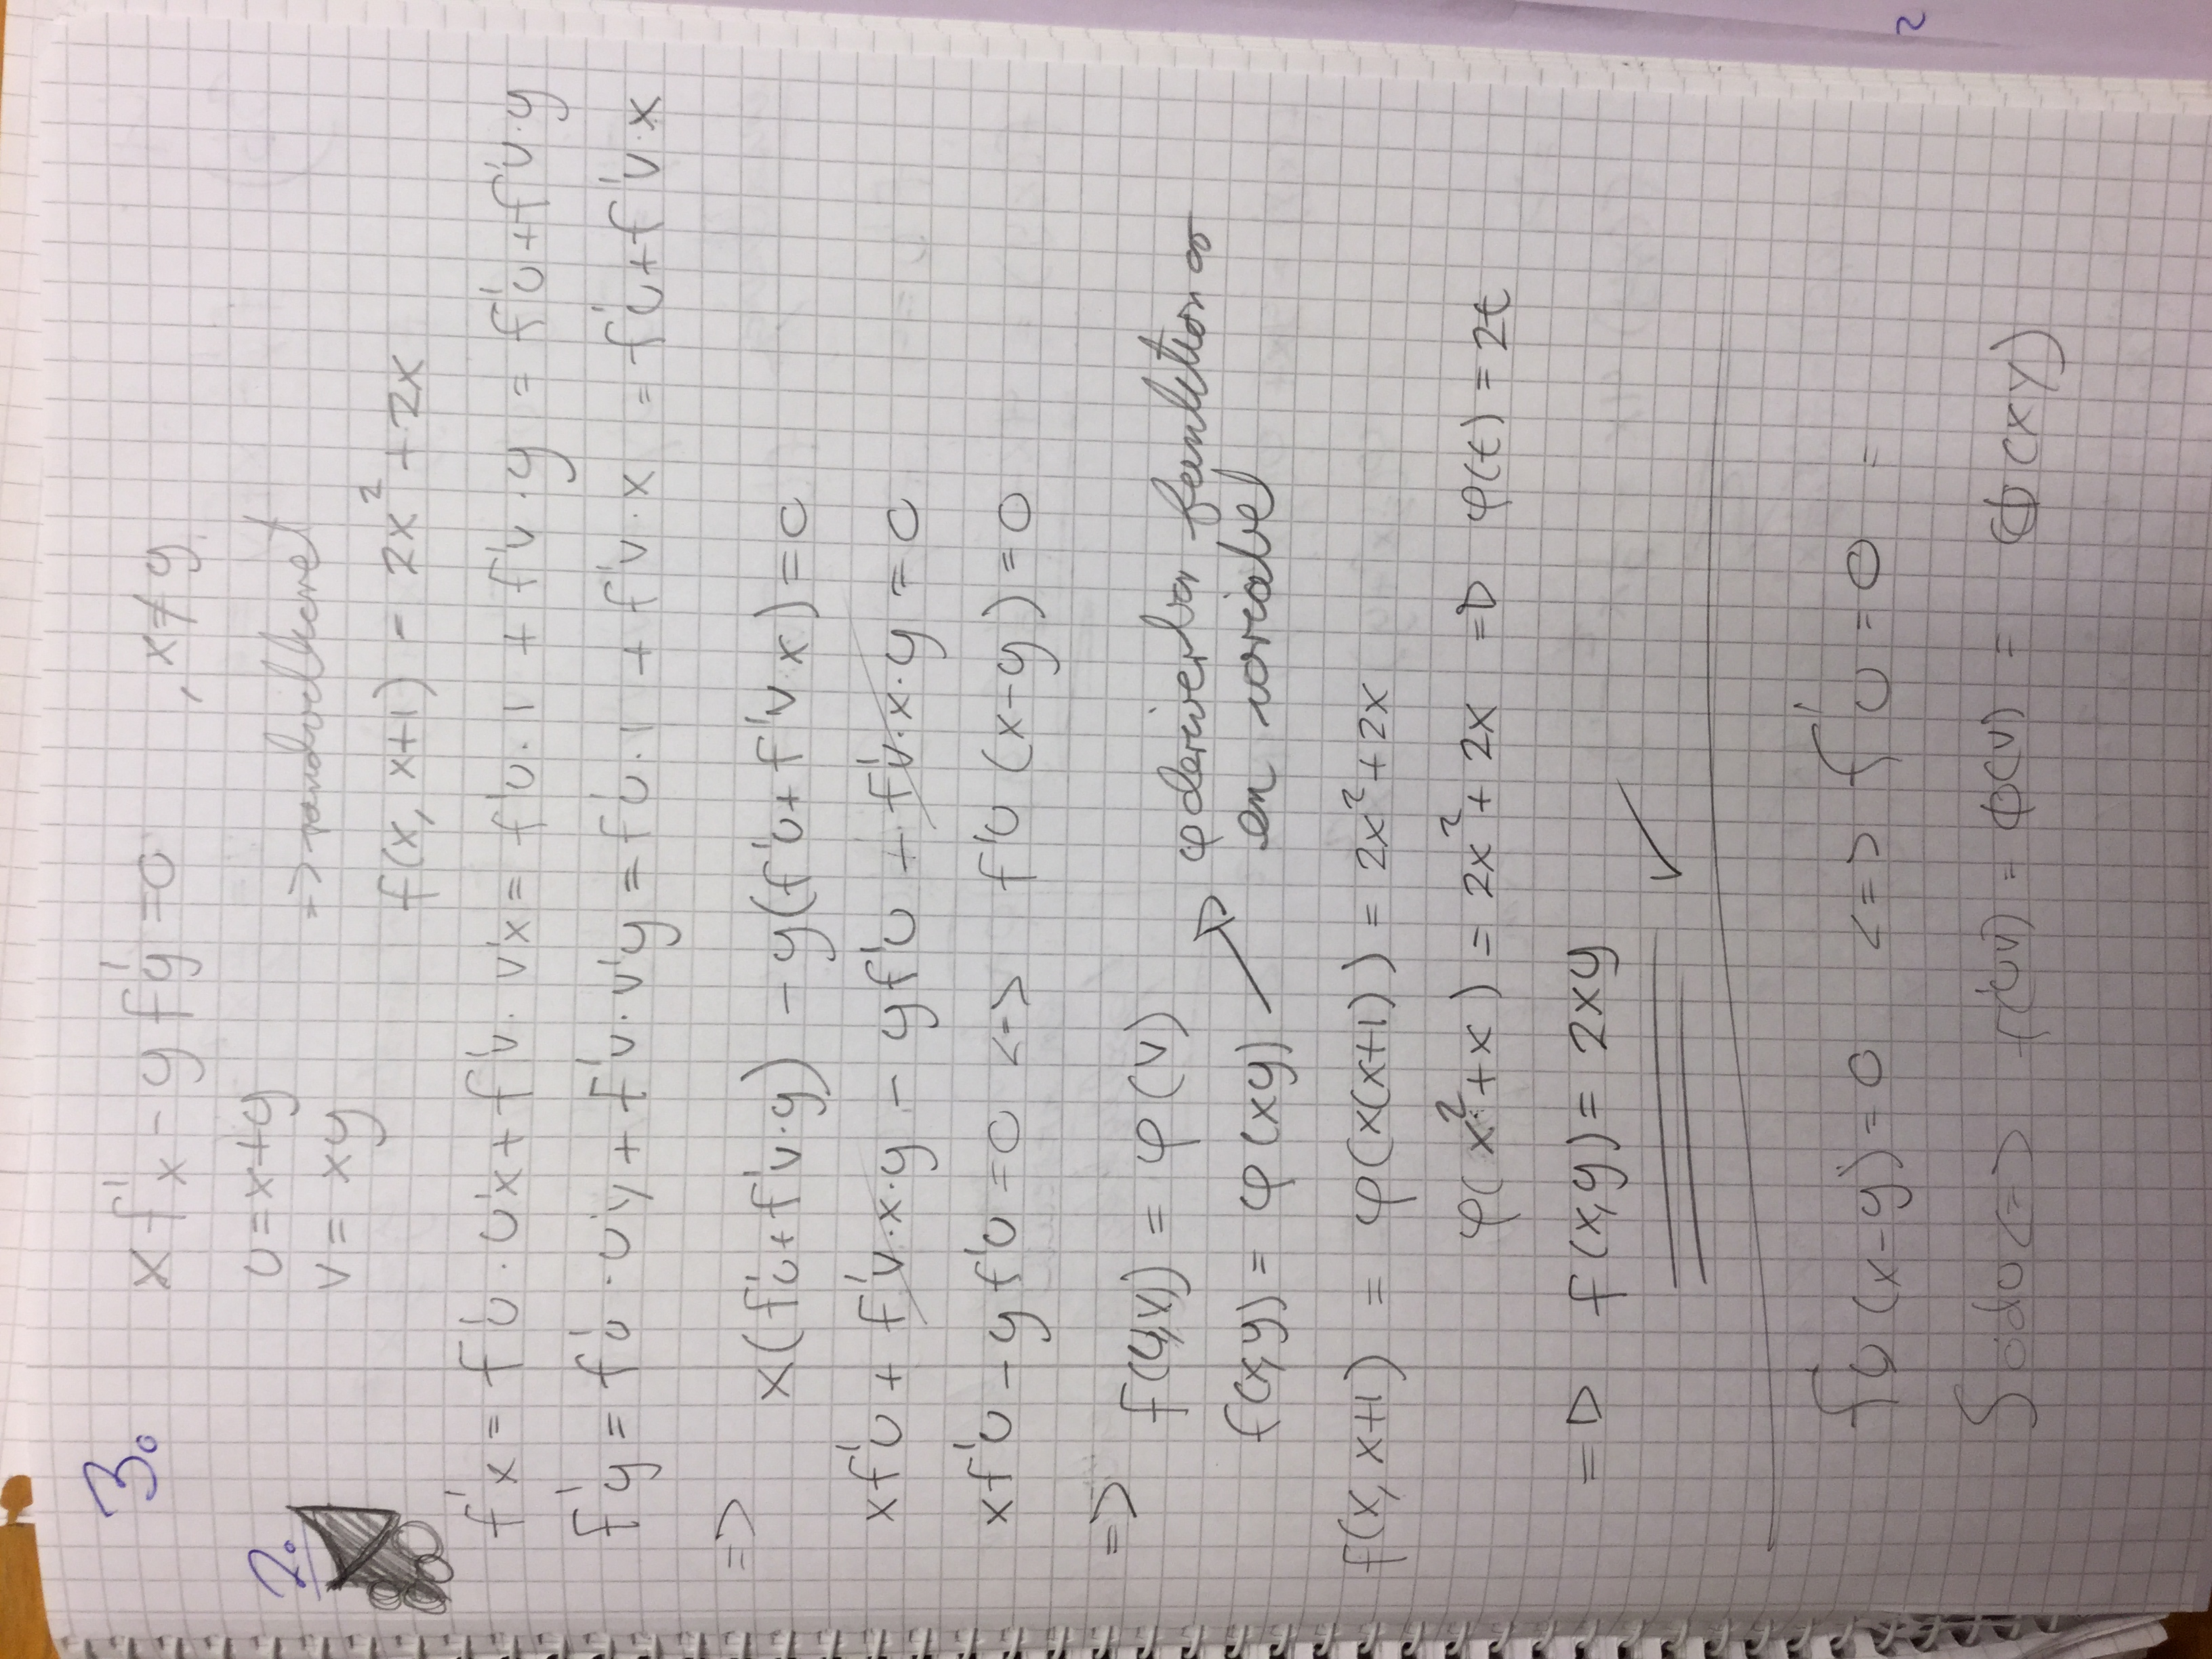 3.
x f'x - y f'y = 0 , x ≠ y
2.
u = x+y
v = xy
=> randvillkoret
f(x, x+1) = 2x² + 2x
f'x = f'u · u'x + f'v · v'x = f'u · 1 + f'v · y = f'u + f'v · y
f'y = f'u · u'y + f'v · v'y = f'u · 1 + f'v · x = f'u + f'v · x
=>
x(f'u + f'v · y) - y(f'u + f'v · x) = 0
xf'u + f'v · x · y - yf'u - f'v · x · y = 0
xf'u - yf'u = 0 <=> f'u (x-y) = 0
=>
f(u,v) = φ(v)
f(x,y) = φ(xy) → φ deriverbar funktion av
en variabel
f(x, x+1) = φ(x(x+1)) = 2x² + 2x
φ(x² + x) = 2x² + 2x => φ(t) = 2t
=> f(x,y) = 2xy
✓
f'u (x-y) = 0 <=> f'u = 0 =
∫ 0du <=> f(u,v) = ϕ(v) = ϕ(xy)
2